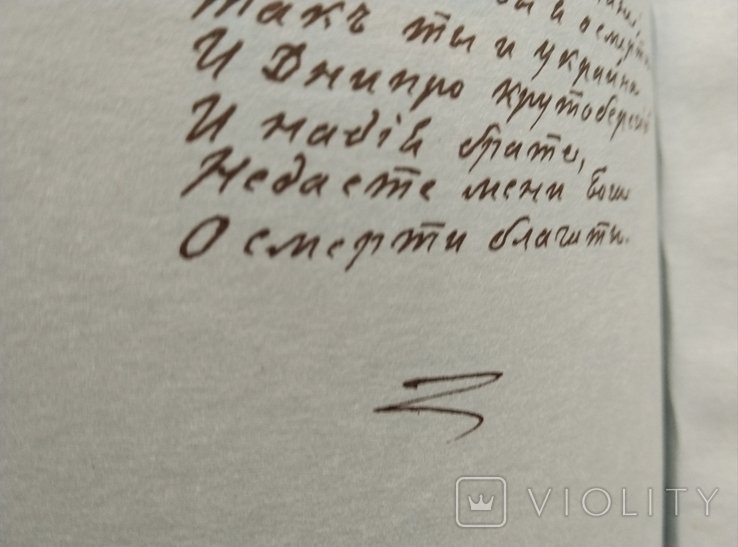 о смерти
Такъ ты и украйна
И Днипро крутоберегій
И надія брате,
Недаете мени Бога
О смерти благати.
VIOLITY